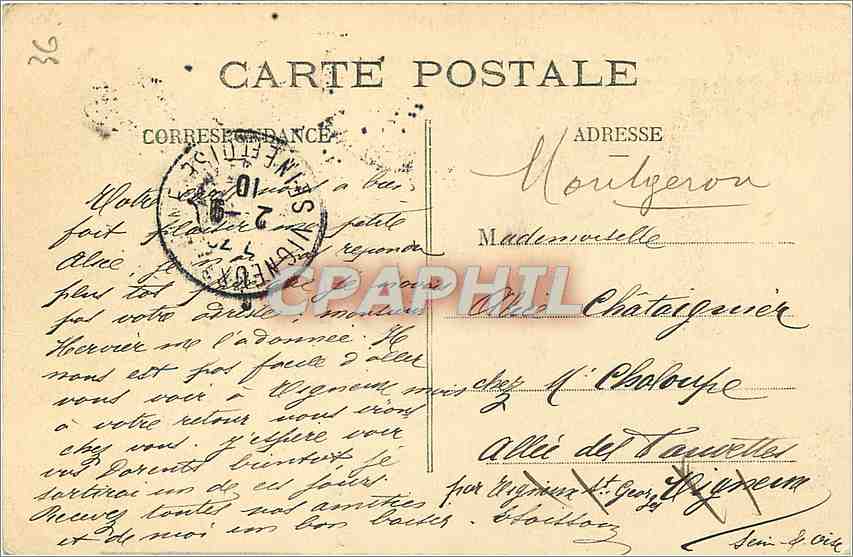 36
CARTE POSTALE
CORRESPONDANCE
Votre nous a bien
fait plaisir ma petite
Alice, je répondu
plus tôt je n'avais
pas votre adresse, monsieur
Hervier me l'a donnée. Il
nous est pas facile d'aller
vous voir à Vigneux mais
à votre retour nous irons
chez vous. J'espère voir
vos Parents bientôt je
sortirai un de ces jours.
Recevez toutes nos amitiés
et de moi un bon baiser.
ADRESSE
Montgeron
Mademoiselle
Alice Châtaignier
chez Mr Choloupe
Allée des Fauvettes
par Vigneux St Georges Vigneux
Seine & Oise
VIGNEUX
SEINE-ET-OISE
10
2 -9
CPAPHIL